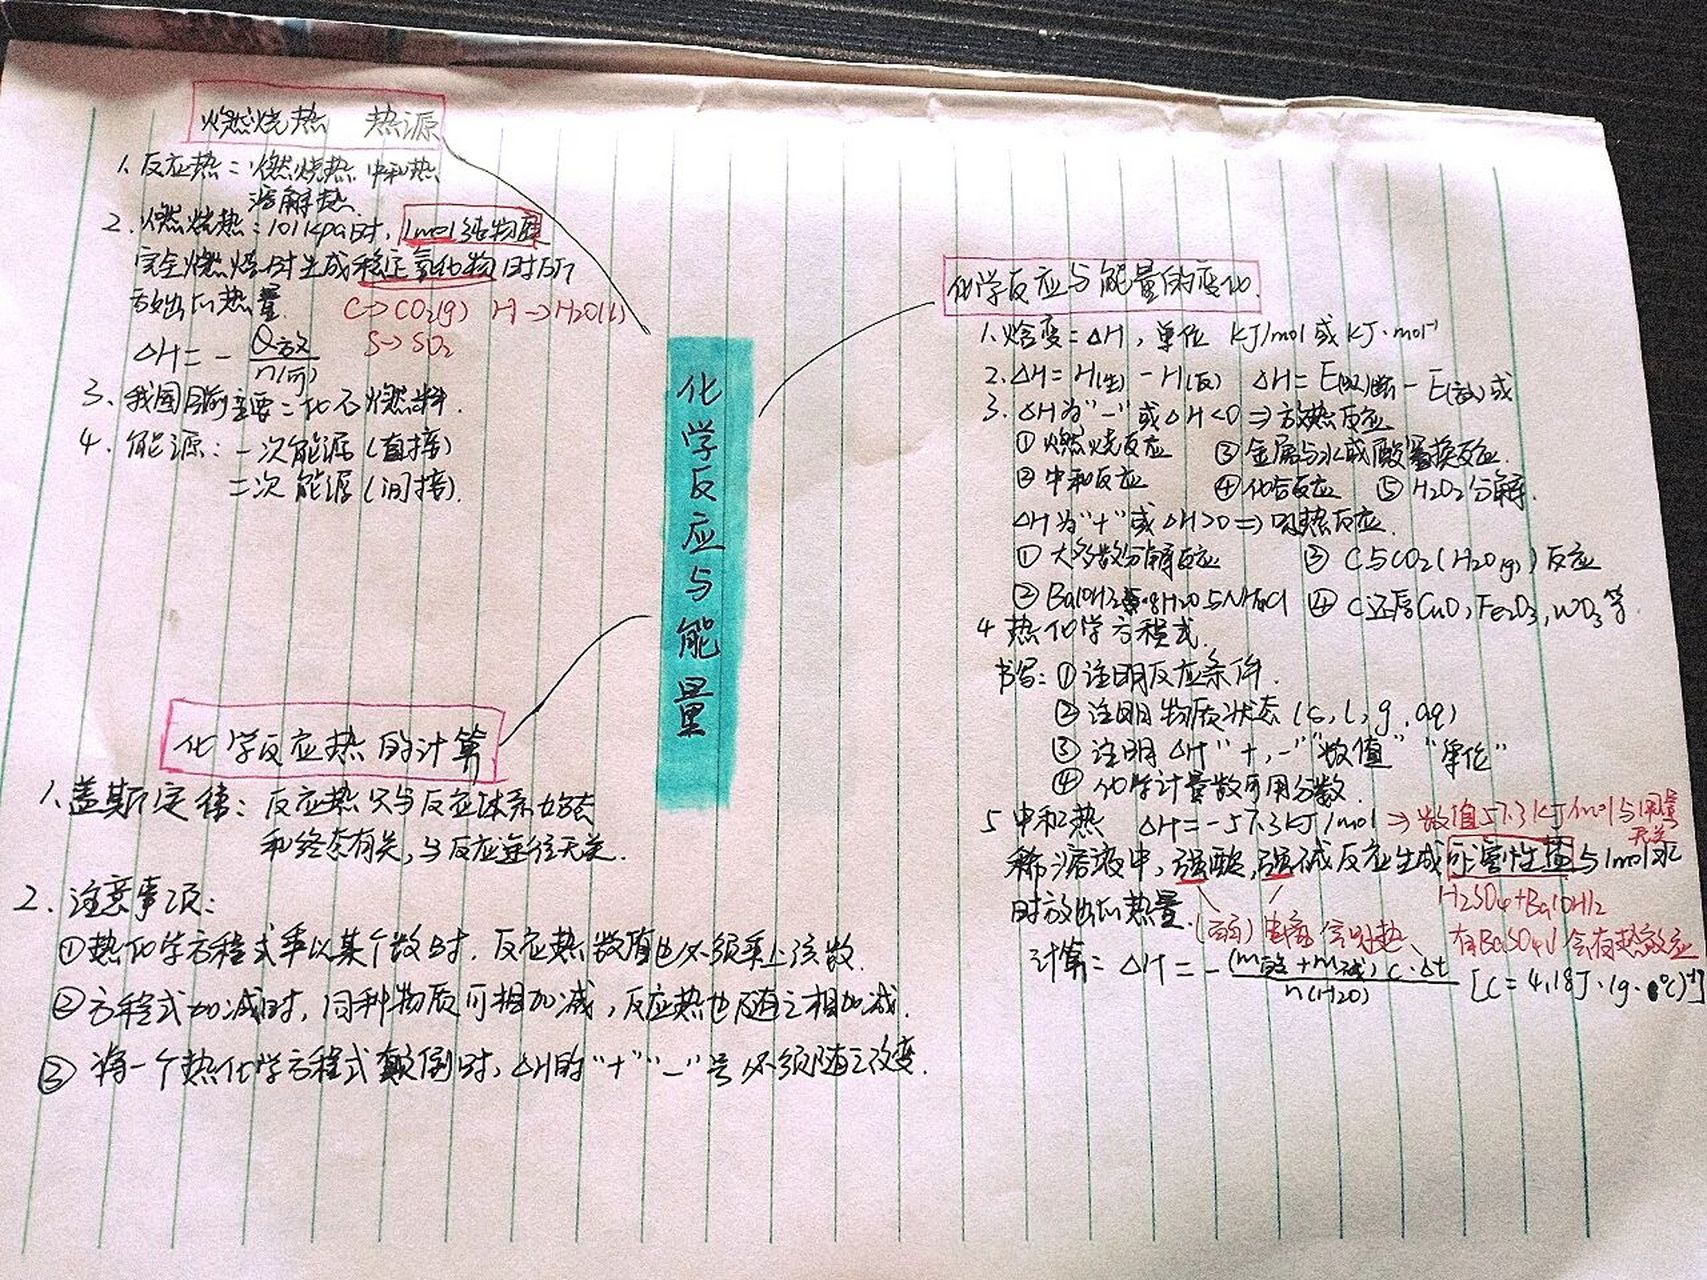 化学反应与能量
燃烧热 热源
1、反应热：燃烧热 中和热
溶解热
2、燃烧热：101kpa时，1mol纯物质
完全燃烧时生成稳定氧化物时所
放出的热量
C→CO₂(g) H→H₂O(l)
S→SO₂
ΔH = - Q放/n(可)
3、我国目前主要：化石燃料.
4、能源：一次能源（直接）
二次能源（间接）.
化学反应与能量的变化.
1、焓变：ΔH，单位 KJ/mol 或 KJ·mol⁻¹
2. ΔH = H(生) - H(反) ΔH = E(吸)断 - E(放)成
3. ΔH为“-”或ΔH<0 ⇒ 放热反应
① 燃烧反应 ③ 金属与水或酸置换反应.
② 中和反应 ④ 化合反应 ⑤ H₂O₂分解.
ΔH为“+”或ΔH>0 ⇒ 吸热反应.
① 大多数分解反应 ③ C与CO₂(H₂O(g))反应
② Ba(OH)₂·8H₂O与NH₄Cl ④ C还原CuO，Fe₂O₃，WO₃等.
4 热化学方程式.
书写：① 注明反应条件.
② 注明物质状态（s，l，g，aq）
③ 注明ΔH“+，-”“数值”“单位”
④ 化学计量数可用分数.
5 中和热 ΔH = -57.3KJ/mol → 数值57.3KJ/mol与用量
无关
稀溶液中，强酸，强碱反应生成可溶性盐与1mol水
时放出的热量.
H₂SO₄+Ba(OH)₂
(弱) 电离 会吸热 有BaSO₄↓会有热效应
计算：ΔH = - (m酸+m碱) c·Δt/n(H₂O) [C = 4.18J·(g·℃)⁻¹]
化学反应热的计算
1、盖斯定律：反应热只与反应体系始态
和终态有关，与反应途径无关.
2、注意事项：
①热化学方程式乘以某个数时，反应热数值也必须乘上该数.
②方程式加减时，同种物质可相加减，反应热也随之相加减.
③ 将一个热化学方程式颠倒时，ΔH的“+”“-”号必须随之改变.